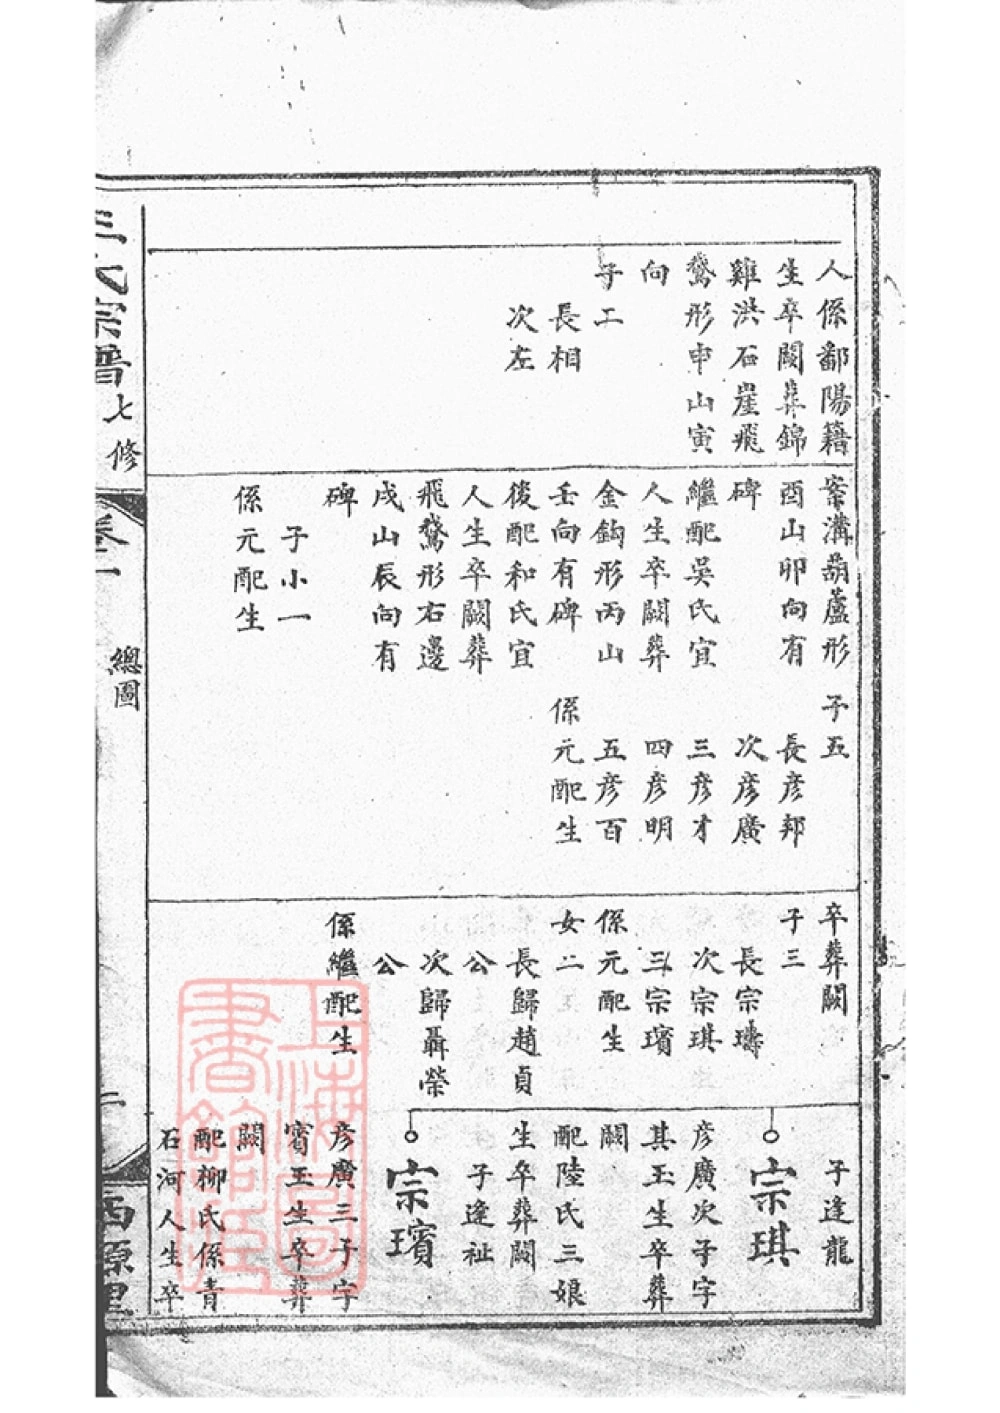 人係鄱陽籍
生卒闕葬錦
雞洪石崖飛
鵞形申山寅
向
子二
長相
次左
案溝葫蘆形
酉山卯向有
碑
繼配吳氏宜
人生卒闕葬
金鈎形丙山
壬向有碑
後配和氏宜
人生卒闕葬
飛鵞形右邊
戌山辰向有
碑
子小一
係元配生
子五
長彦邦
次彦廣
三彦才
四彦明
五彦百
係元配生
卒葬闕
子三
長宗璹
次宗琪
三宗璸
係元配生
女二
長歸趙貞
公
次歸聶榮
公
係繼配生
子逢龍
宗琪
彦廣次子字
其玉生卒葬
闕
配陸氏三娘
生卒葬闕
子逢祉
宗璸
彦廣三子字
賓玉生卒葬
闕
配柳氏係青
石河人生卒
王氏宗譜
七修
卷一
總圖
二
西原里
上海圖
書館藏